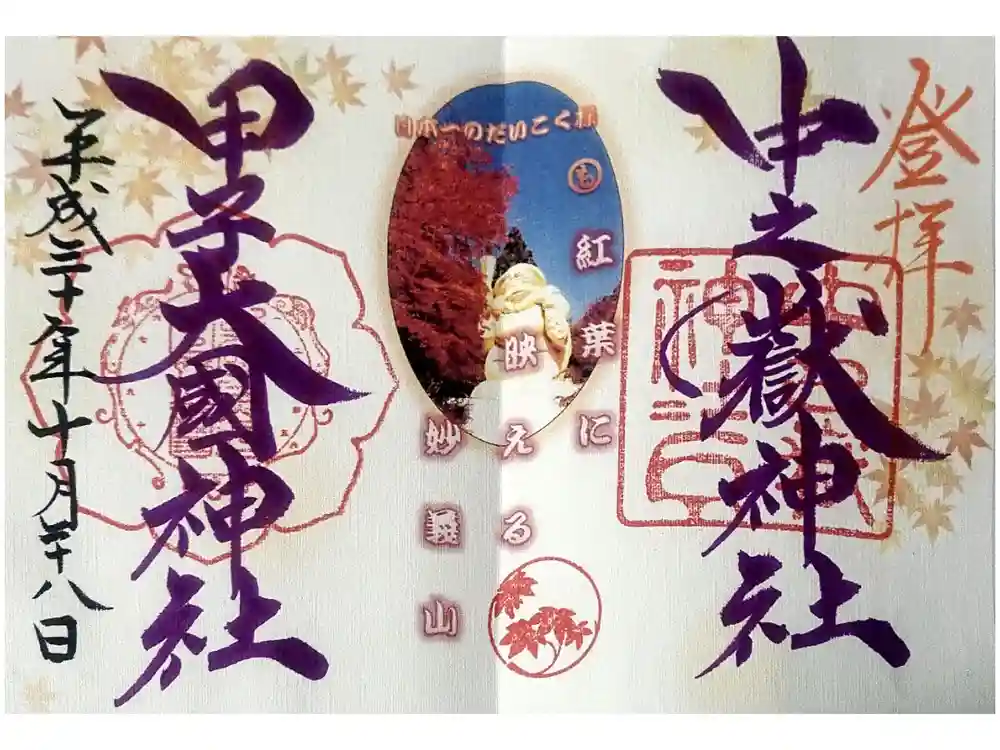 登拝
中之嶽神社
日本一のだいこく様
も
紅葉に
映える
妙義山
甲子大國神社
平成三十年十月二十八日